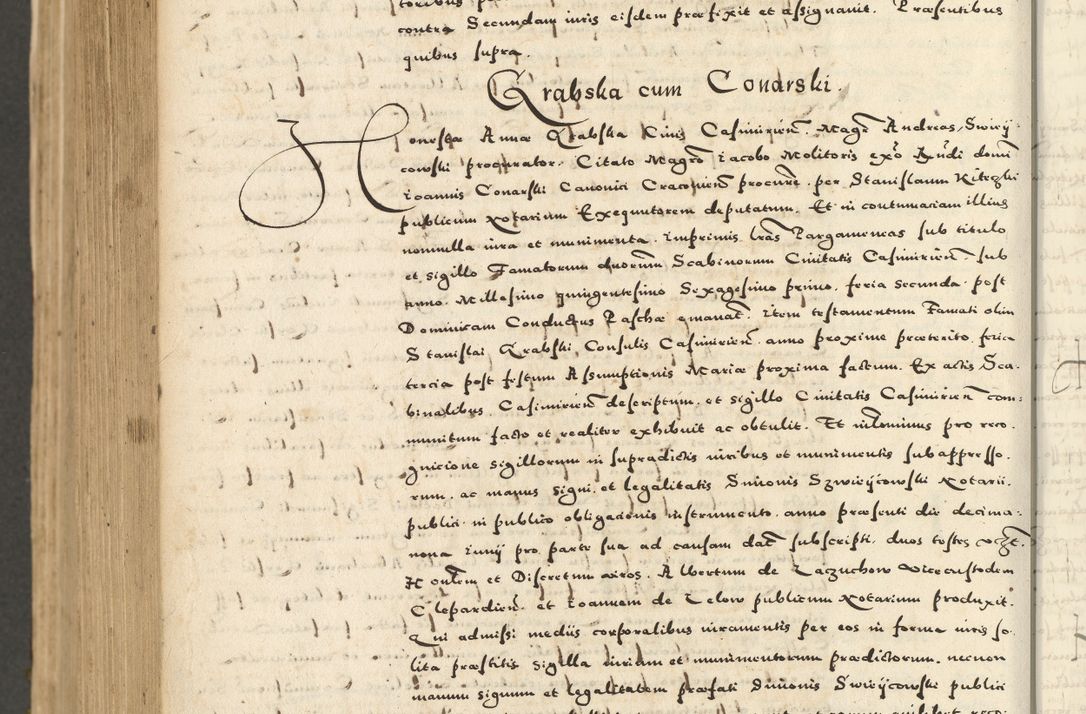 contra Secundam iuris eisdem præfixit et assignauit. Præsentibus
quibus supra.
Grabska cum Conarski.
Honestæ Annæ Grabska Ciuis Casimirien̄. Magr̄ Andreas Swirÿ
cowski procurator. Citato Magr̄o iacobo Molitoris exo͂ Rn̄di domi
ioannis Conarski Canonici Cracouien̄ procure. per Stanislaum
publicum Notarium Exequutorem deputatum. Et in contumaciam illius
nonnulla iura et munimenta. imprimis lr̄as Pargameneas sub titulo
et sigillo Famatorum duorum Scabinorum Ciuitatis Casimirien̄ sub
anno. Millesimo quingentesimo Sexagesimo primo. feria secunda. post
Dominicam Conductus Paschæ emanat̄. item testamentum Famati olim
Stanislai Grabski Consulis Casimirien̄. anno proxime præterito. feria
tercia post festum Assumptionis Mariæ proxima factum. Ex actis Sca-
binalibus Casimirien̄ descriptum. et sigillo Ciuitatis Casimirien̄ com=
munitum facto et realiter exhibuit ac obtulit. Et nil̄ominus pro reco.
gnicione sigillorum in supradictis iuribus et munimentis subappresso.
rum. ac manus signi. et legalitatis Simonis Szwirÿcowski Notarii.
publici. in publico obligacionis instrumento. anno præsenti die decima=
nona iunÿ pro parte sua ad causam dat̄ subscripti. duos testes
Honl̄em et Discretum viros. Albertum de Laczuchow vicecustodem
Clepardien̄. et ioannem de Lelow publicum Notarium produxit.
Qui admissi mediis corporalibus iuramentis per eos in forma iuris so.
lita præstitis sigilla iurium et munimentorum prædictorum. necnon
manum signum et legalitatem præfati Simonis Swirÿcowski publici